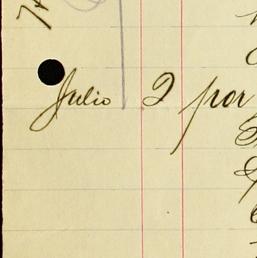 Julio 2 por